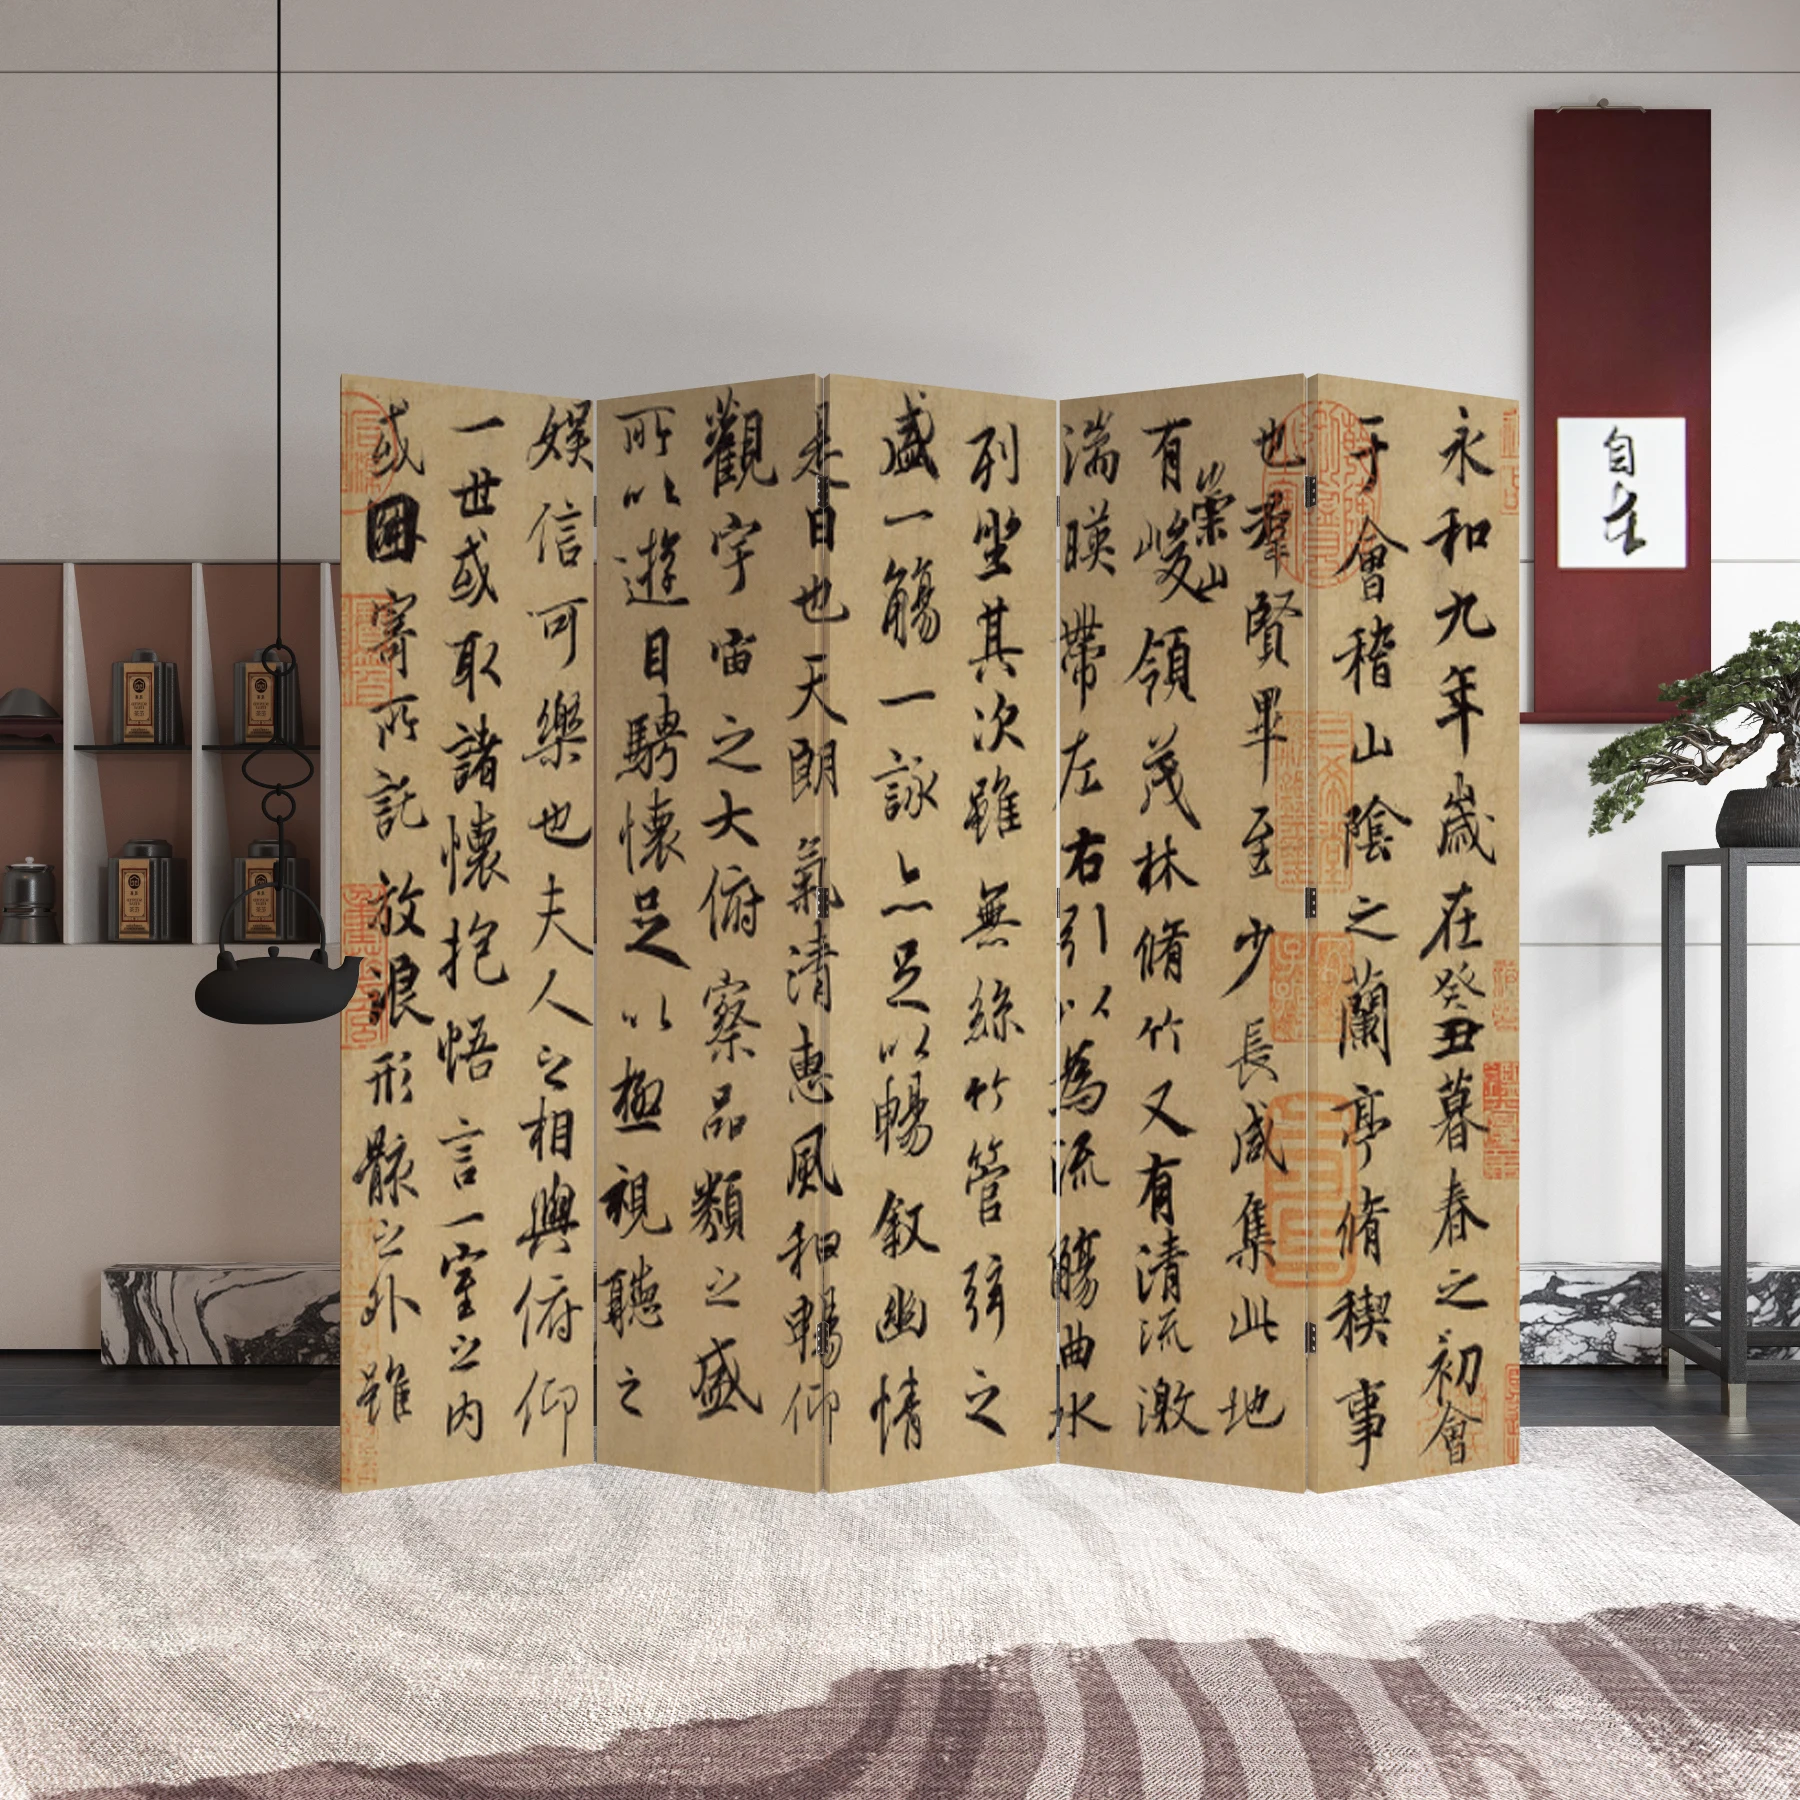 永和九年歲在癸丑暮春之初會
于會稽山陰之蘭亭脩稧事
也羣賢畢至少長咸集此地
有崇山峻領茂林脩竹又有清流激
湍暎帶左右引以為流觴曲水
列坐其次雖無絲竹管弦之
盛一觴一詠亦足以暢敘幽情
是日也天朗氣清惠風和暢仰
觀宇宙之大俯察品類之盛
所以遊目騁懷足以極視聽之
娛信可樂也夫人之相與俯仰
一世或取諸懷抱悟言一室之內
或因寄所託放浪形骸之外雖
自在